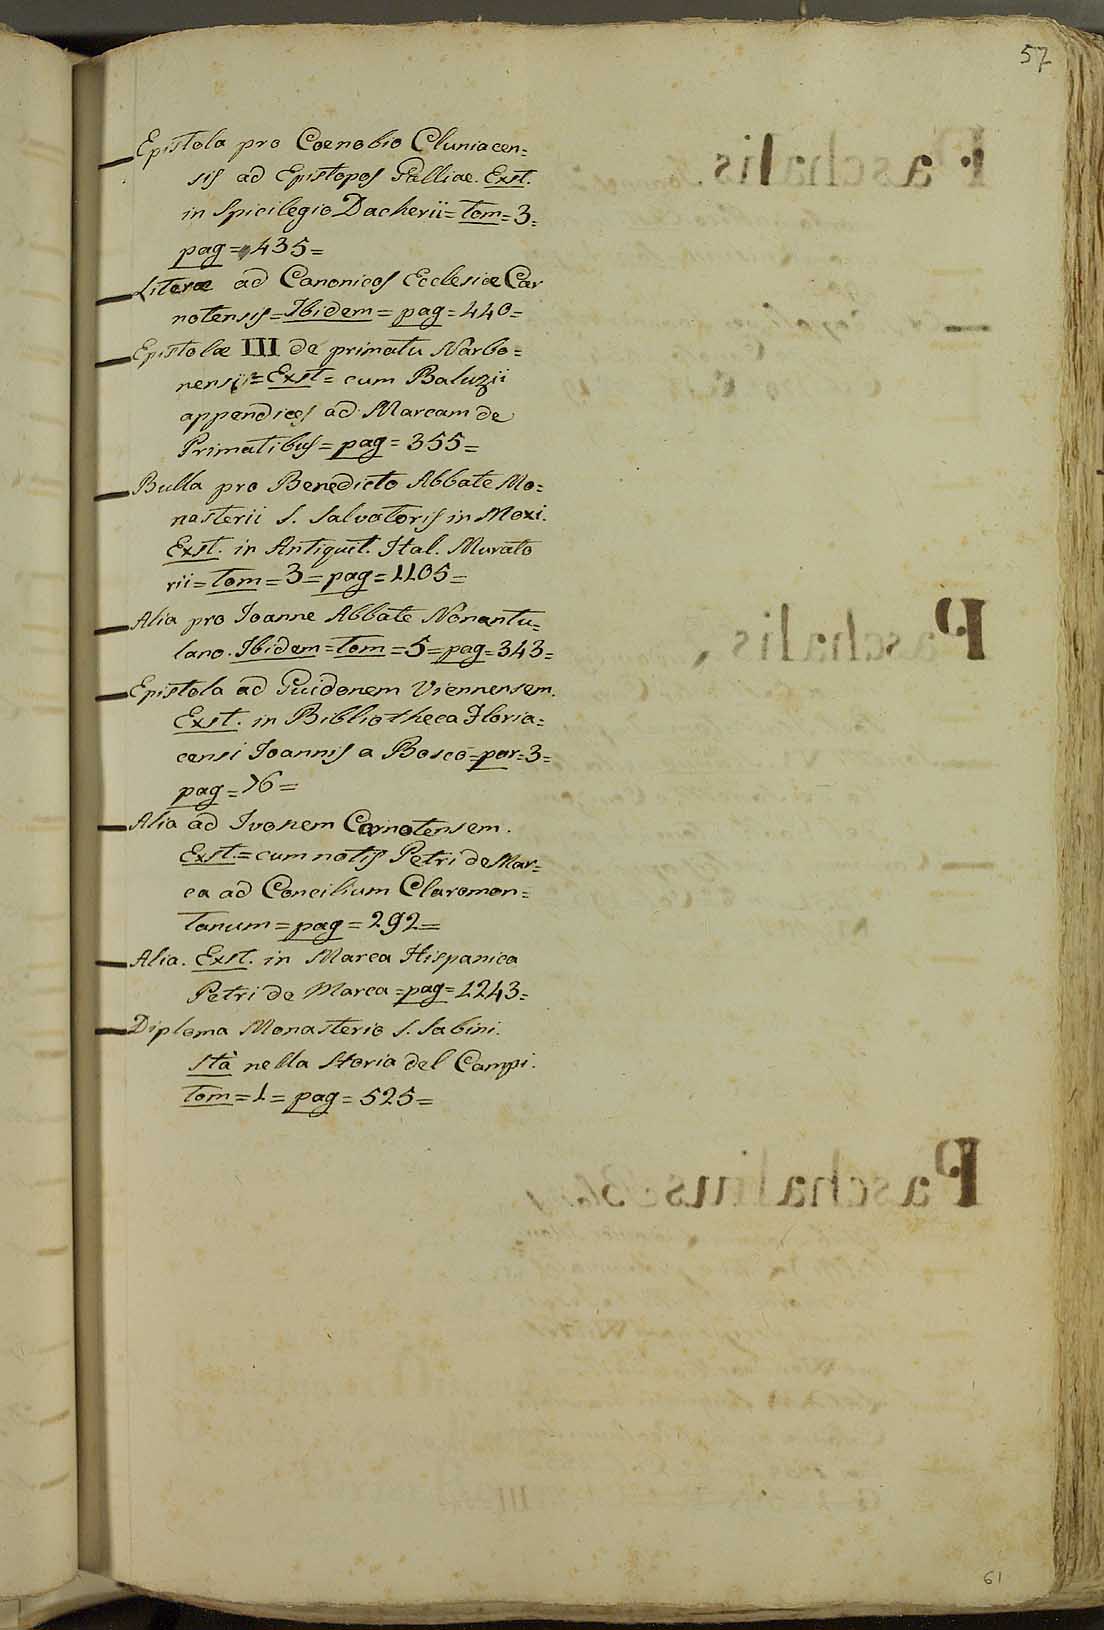 57
Epistola pro Coenobio Cluniacen=
sis ad Epistopos Galliae. Exst.
in Spicilegio Dacherii = tom = 3 =
pag = 435 =
Literæ ad Canonicos Ecclesiæ Car
notensis = Ibidem = pag = 440 =
Epistolæ III de primatu Narbo=
nensis = Exst = cum Baluzii
appendices ad Marcam de
Primatibus = pag = 355 =
Bulla pro Benedicto Abbate Mo=
nasterii S. Salvatoris in Moxi.
Exst. in Antiquit. Ital. Murato
rii = tom = 3 = pag = 1105 =
Alia pro Ioanne Abbate Nonantu=
lano. Ibidem = tom = 5 = pag = 343 =
Epistola ad Guidonem Viennensem.
Exst. in Bibliotheca Floria=
censi Joannis a Bosco = par = 3 =
pag = 76 =
Alia ad Ivonem Carnotensem.
Exst. = cum notis Petri de Mar=
ca ad Concilium Claromon=
tanum = pag = 292 =
Alia. Exst. in Marca Hispanica
Petri de Marca = pag = 1243 =
Diploma Monasterio S. Sabini.
stà nella storia del Campi.
tom = 1 = pag = 525 =
Paschalis
Paschalis
Paschalius
61